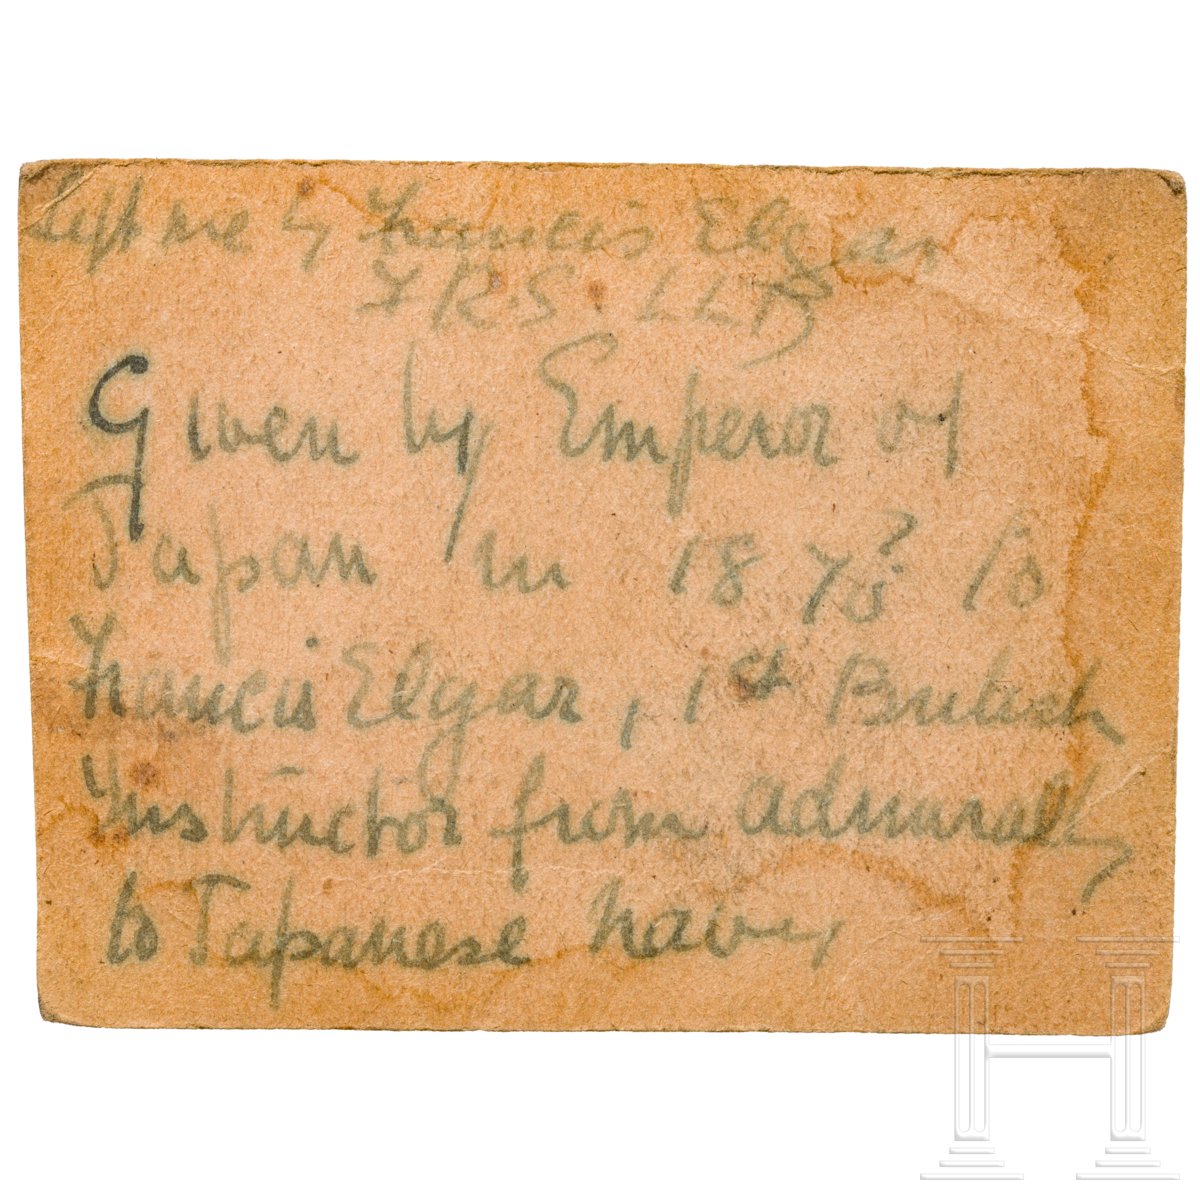 Left me by Francis Elgar
F.R.S. LLD
Given by Emperor of
Japan in 187? to
Francis Elgar, 1st British
Instructor from Admiralty
to Japanese navy
H